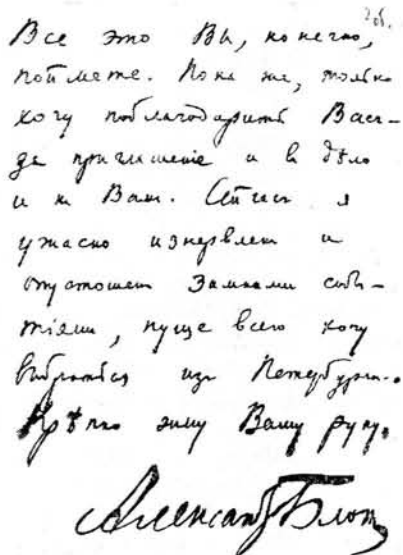 Все это Вы, конечно,
поймете. Пока же, только
хочу поблагодарить Васъ –
за приглашенiе и въ дѣло
и къ Вамъ. Сейчасъ я
ужасно изнервленъ и
опустошенъ зимними собы-
тiями, пуще всего хочу
выбраться изъ Петербурга.
Крѣпко жму Вашу руку.
Александръ Блокъ